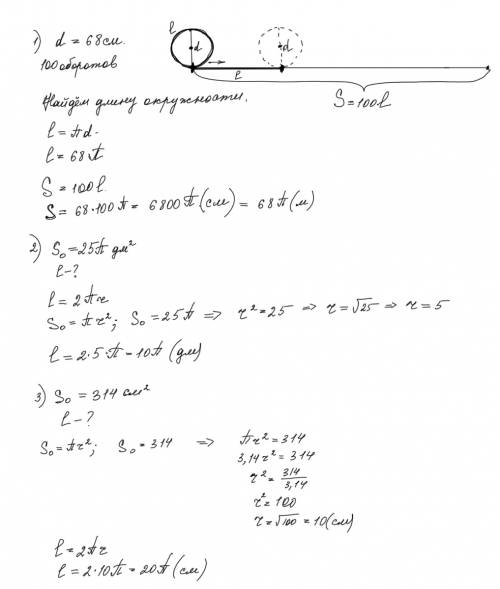 1) d = 68 см.
l
d
d
100 оборотов
l
S = 100l
Найдём длину окружности.
l = πd.
l = 68π
S = 100l.
S = 68·100π = 6800π (см) = 68π (м)
2) S₀ = 25π дм²
l - ?
l = 2πr
S₀ = πr²; S₀ = 25π => r² = 25 => r = √25 => r = 5
l = 2·5·π - 10π (дм)
3) S₀ = 314 см²
l - ?
S₀ = πr²; S₀ = 314 => πr² = 314
3,14r² = 314
r² = 314/3,14
r² = 100
r = √100 = 10 (см)
l = 2πr
l = 2·10π = 20π (см)